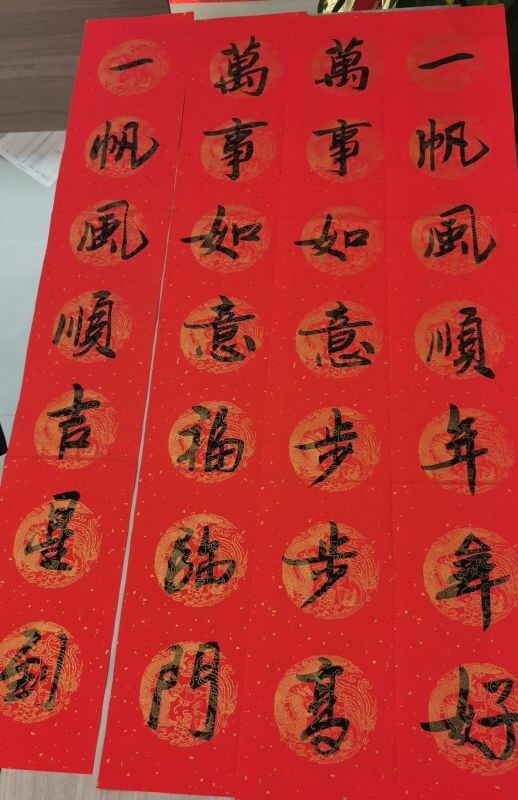 一帆風順年年好
萬事如意步步高
萬事如意福臨門
一帆風順吉星到